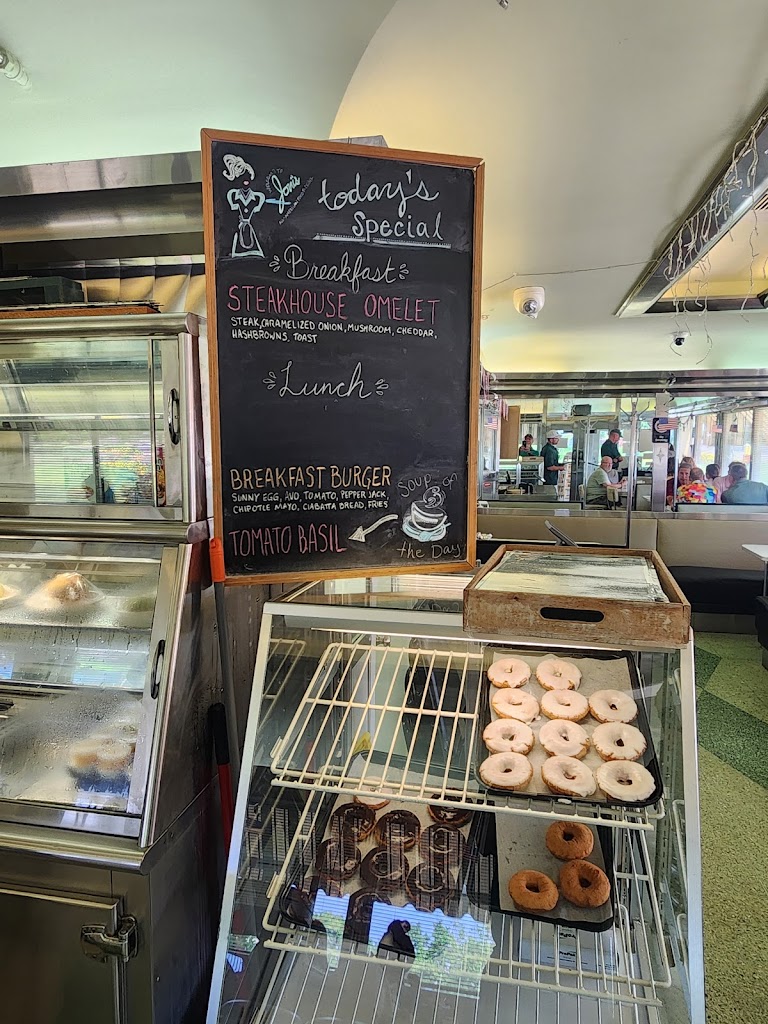 Jan's
today's
Special
Breakfast
STEAKHOUSE OMELET
STEAK, CARAMELIZED ONION, MUSHROOM, CHEDDAR,
HASHBROWNS, TOAST
Lunch
BREAKFAST BURGER
SUNNY EGG, AVO, TOMATO, PEPPER JACK,
CHIPOTLE MAYO, CIABATTA BREAD, FRIES
TOMATO BASIL
Soup of
the Day